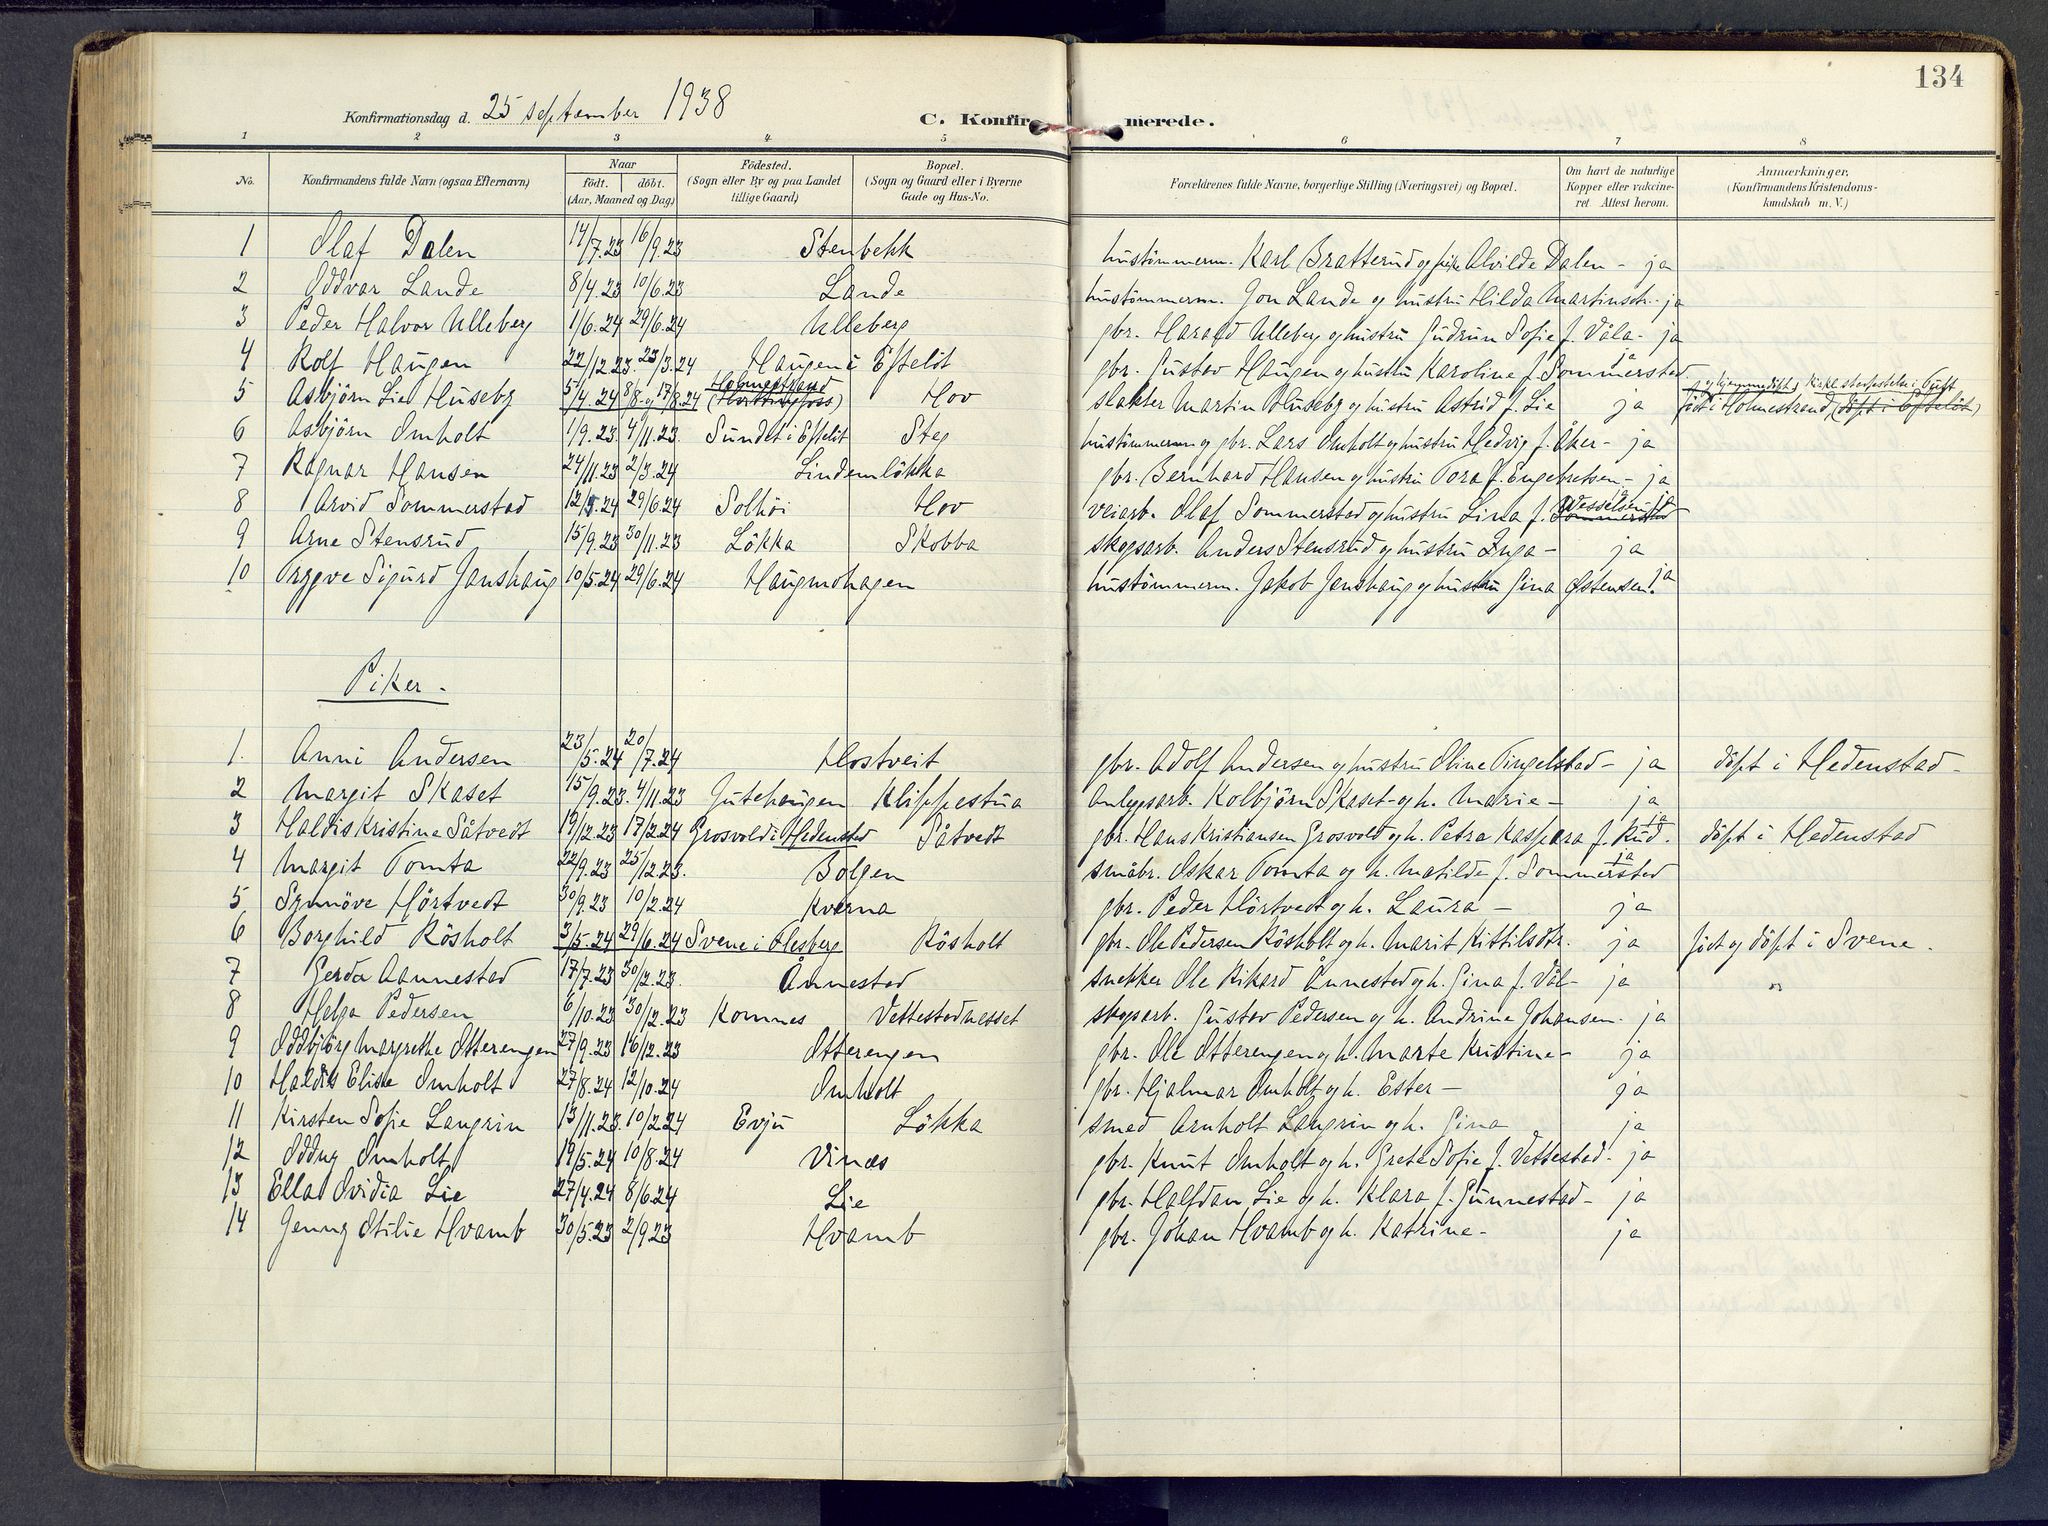 134
Konfirmationsdag d. 25 september 1938
C. Konfirmerede.
1 2 3 4 5 6 7 8
No. Konfirmandens fulde Navn (ogsaa Efternavn) Naar født. døbt. (Aar, Maaned og Dag) Fødested. (Sogn eller By og paa Landet tillige Gaard) Bopæl. (Sogn og Gaard eller i Byerne Gade og Hus-No. Forældrenes fulde Navne, borgerlige Stilling (Næringsvei) og Bopæl. Om havt de naturlige Kopper eller vakcineret. Attest herom. Anmærkninger. (Konfirmandens Kristendomskundskab m. V.)
1 Olaf Dalen 14/7.23 16/9.23 Stenbekk hustömmerm. Karl Bratterud og frk. Alvilde Dalen - ja
2 Oddvar Lande 8/4.23 10/6.23 Lande hustömmerm. Jon Lande og hustru Hilda Martinsdtr. - ja
3 Peder Halvor Ulleberg 1/6.24 29/6.24 Ulleberg gbr. Harald Ulleberg og hustru Gudrun Sofie f. Våla - ja
4 Rolf Haugen 22/12.23. 23/3.24 Haugen i Efteløt gbr. Gustav Haugen og hustru Karoline f. Sommerstad ja
5 Asbjörn Lie Huseby 5/4.24 8/8. og 17/8.24 Holmestrand (Hvittingfoss) Hov slakter Martin Huseby og hustru Astrid f. Lie ja og hjemmedöpt, kirkl. stadfestelse i Tuft föt i Holmestrand (döpt i Efteløt)
6 Asbjörn Omholt 1/9.23. 4/11.23. Sundet i Efteløt Steg hustömmerm og gbr. Lars Omholt og hustru Hedvig f. Åker - ja
7 Ragnar Hansen 24/11.23 2/3.24 Lindemløkka gbr. Bernhard Hansen og hustru Tora f. Engebretsen - ja
8 Arvid Sommerstad 12/5.24 29/6.24 Solhöi Hov veiarb. Olaf Sommerstad og hustru Lina f. Wesselsen ja
9 Arne Stensrud 15/9.23 30/11.23 Lökka Skobba skogsarb. Anders Stensrud og hustru Inga - ja
10 Trygve Sigurd Janshaug 10/5.24 29/6.24 Haugmohagen hustömmerm. Jakob Janshaug og hustru Gina Østensen. ja
Piker.
1. Anni Andersen 23/5.24 20/7.24 Hostveit gbr. Adolf Andersen og hustru Oline Tingelstad - ja döpt i Hedenstad -
2 Margit Skaset 15/9.23. 4/11.23 Gutehaugen Klippestua Anleggsarb. Kolbjörn Skaset - og h. Marie - ja
3 Haldis Kristine Såtvedt 19/12.23 17/2.24 Grosvold i Hedenstad Såtvedt gbr. Hans Kristiansen Grosvold og h. Petra Kaspara f. Rud. ja döpt i Hedenstad
4 Margit Tomta 22/9.23 25/12.23. Bolgen småbr. Oskar Tomta og h. Matilde f. Sommerstad ja
5 Synnöve Hörtvedt 30/9.23 10/2.24 Kverna gbr. Peder Hörtvedt og h. Laura - ja
6 Borghild Rösholt 3/5.24 29/6.24 Svene i Flesberg Rösholt gbr. Ole Pedersen Rösholt og h. Marit Kittilsdtr. ja föt og döpt i Svene.
7 Gerda Aannestad 17/7.23 30/12.23. Ånnestad snekker Ole Rikard Ånnestad og h. Gina f. Vål - ja
8 Helga Pedersen 6/10.23 30/12.23 Komnes Vettestadnesset skogsarb. Gustav Pedersen og h. Andrine Johansen. ja
9 Oddbjörg Margrethe Otterengen 27/9.23 16/12.23 Otterengen gbr. Ole Otterengen og h. Marte Kristine - ja
10 Haldis Elise Omholt 27/8.24 12/10.24 Omholt gbr. Hjalmar Omholt og h. Ester - ja
11 Kirsten Sofie Langrin 13/11.23. 10/2.24 Evju Lökka smed Arnholt Langrin og h. Gina ja
12 Oddny Omholt 19/5.24 10/8.24 Vinæs gbr. Knut Omholt og h. Grete Sofie f. Vettestad - ja
13 Ella Ovidia Lie 27/4.24 8/6.24 Lie gbr. Halfdan Lie og h. Klara f. Gunnestad - ja
14 Jenny Otilie Hvamb 30/5.23 2/9.23 Hvamb gbr. Johan Hvamb og h. Katrine - ja